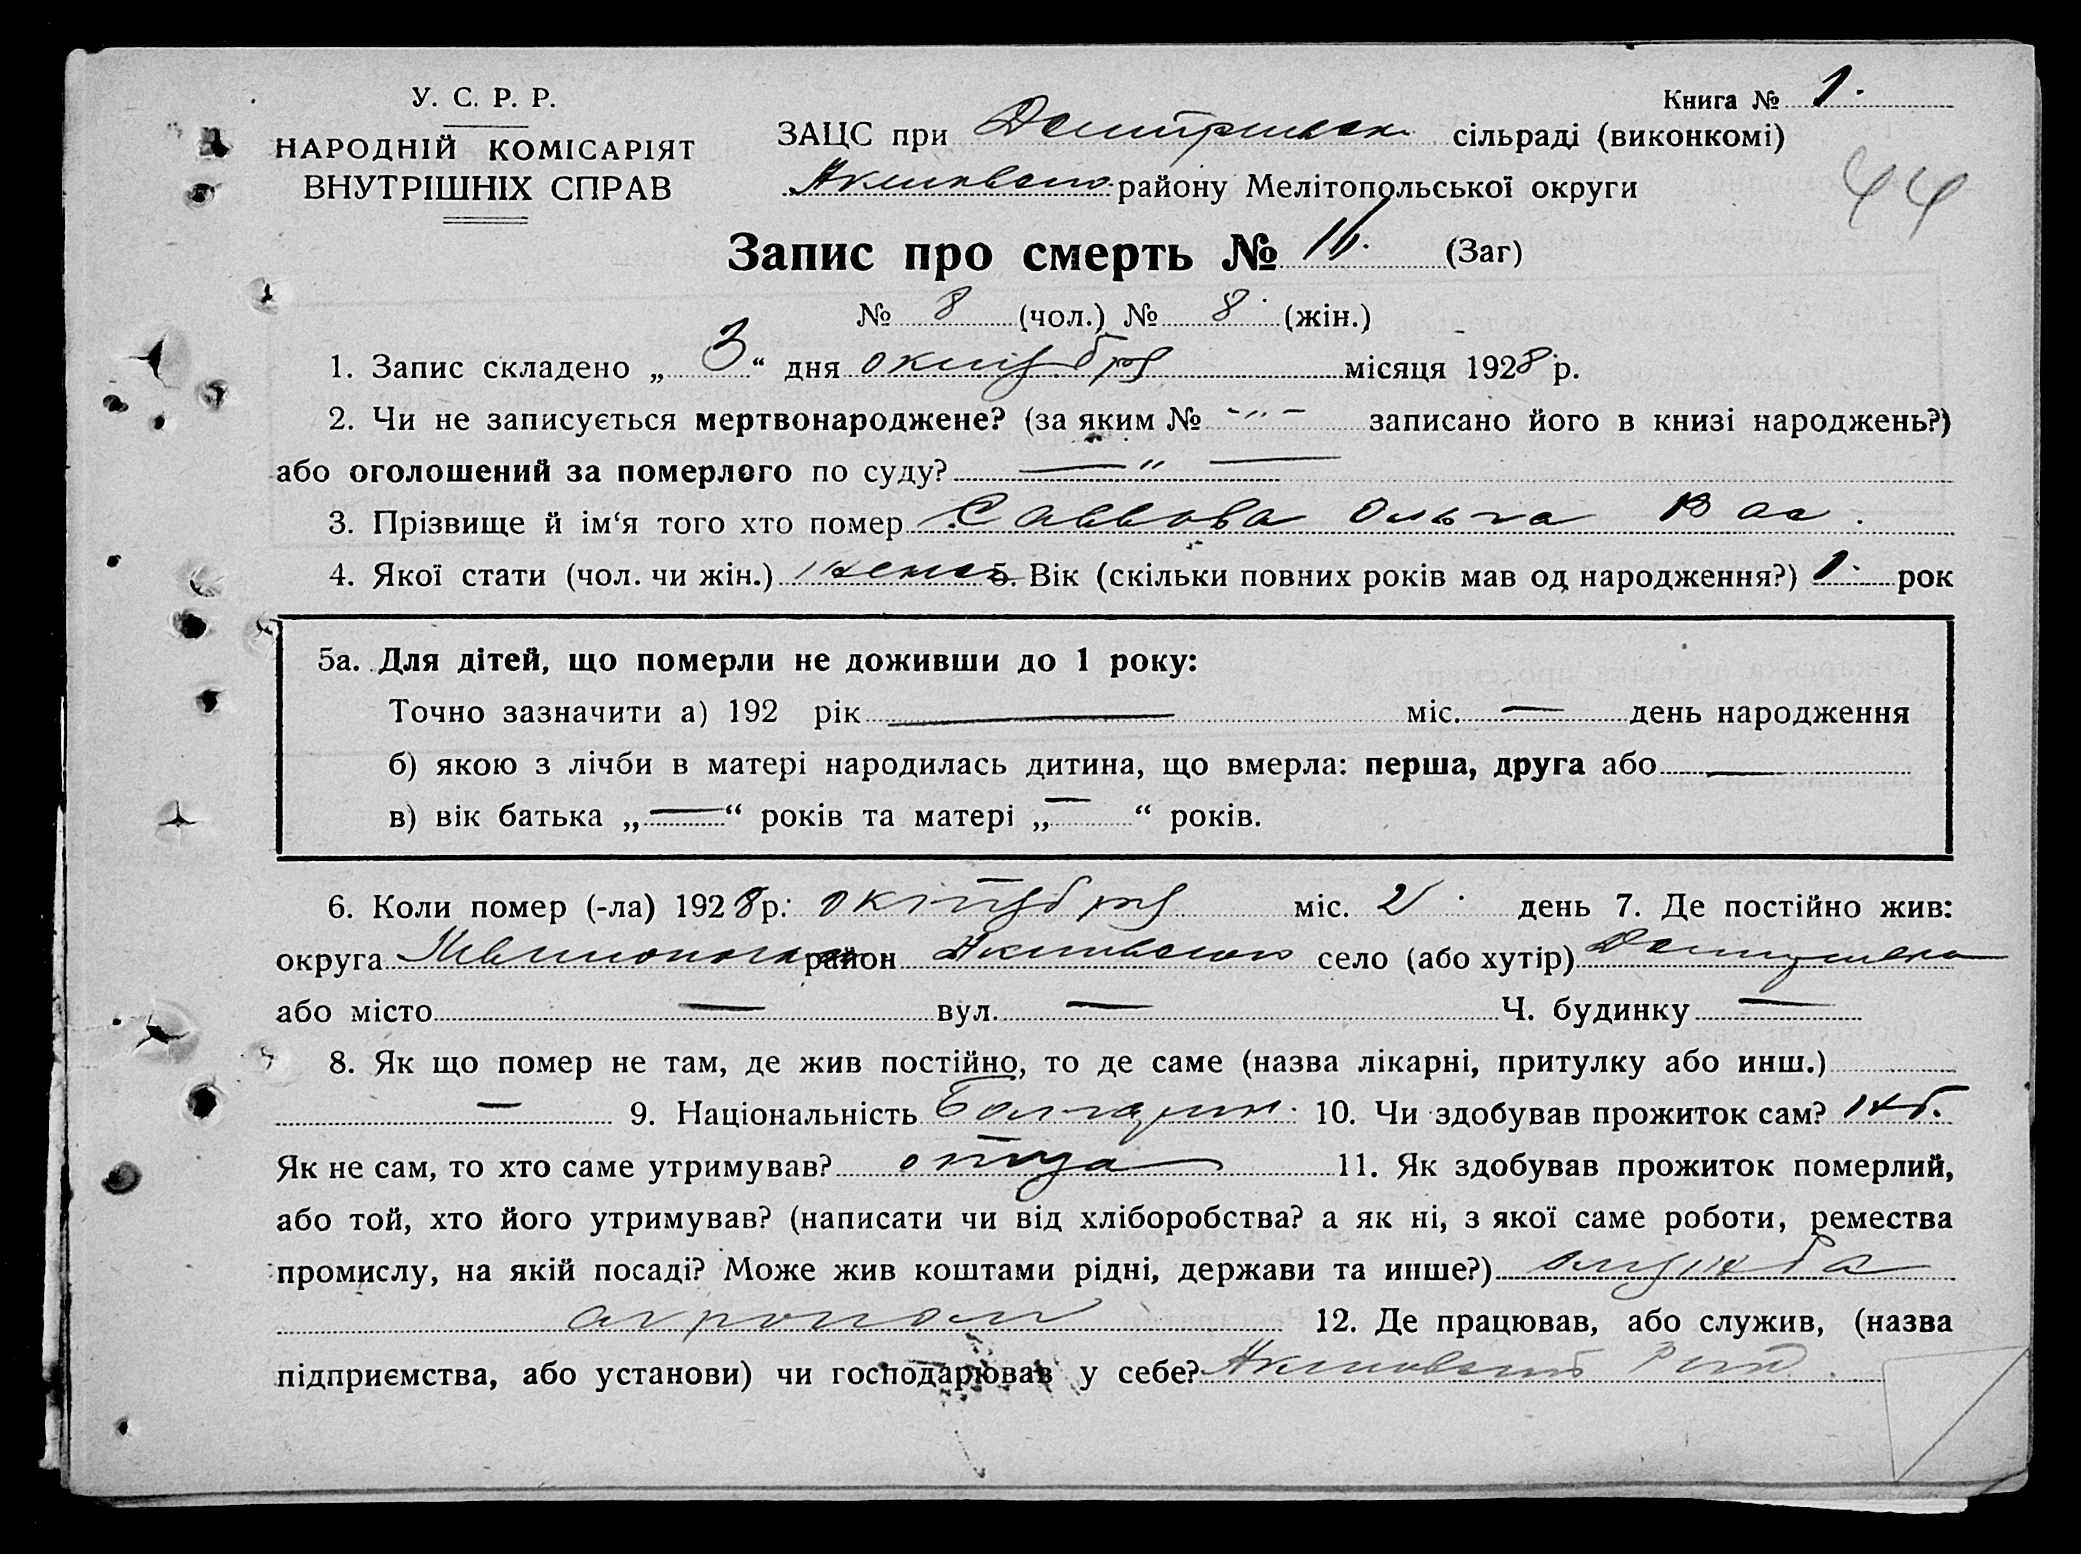 У. С. Р. Р.
НАРОДНІЙ КОМІСАРІЯТ
ВНУТРІШНІХ СПРАВ
Книга № 1.
ЗАЦС при сільраді (виконкомі)
району Мелітопольської округи
44
Запис про смерть № 16. (Заг)
№ 8 (чол.) № 8 (жін.)
1. Запис складено „ 3 “ дня октября місяця 1928 р.
2. Чи не записується мертвонароджене? (за яким № -„- записано його в книзі народжень?)
або оголошений за померлого по суду? —„—
3. Прізвище й ім‘я того хто помер Саввова Ольга Вас.
4. Якої стати (чол. чи жін.) 5. Вік (скільки повних років мав од народження?) 1. рок
5а. Для дітей, що померли не доживши до 1 року:
Точно зазначити а) 192 рік — міс. — день народження
б) якою з лічби в матері народилась дитина, що вмерла: перша, друга або —
в) вік батька „—“ років та матері „—“ років.
6. Коли помер (-ла) 1928 р. октября міс. 2 день 7. Де постійно жив:
округа район село (або хутір)
або місто — вул. — Ч. будинку —
8. Як що помер не там, де жив постійно, то де саме (назва лікарні, притулку або инш.)
— 9. Національність 10. Чи здобував прожиток сам?
Як не сам, то хто саме утримував? отца 11. Як здобував прожиток померлий,
або той, хто його утримував? (написати чи від хліборобства? а як ні, з якої саме роботи, ремества
промислу, на якій посаді? Може жив коштами рідні, держави та инше?) служба
агроном 12. Де працював, або служив, (назва
підприємства, або установи) чи господарював у себе?